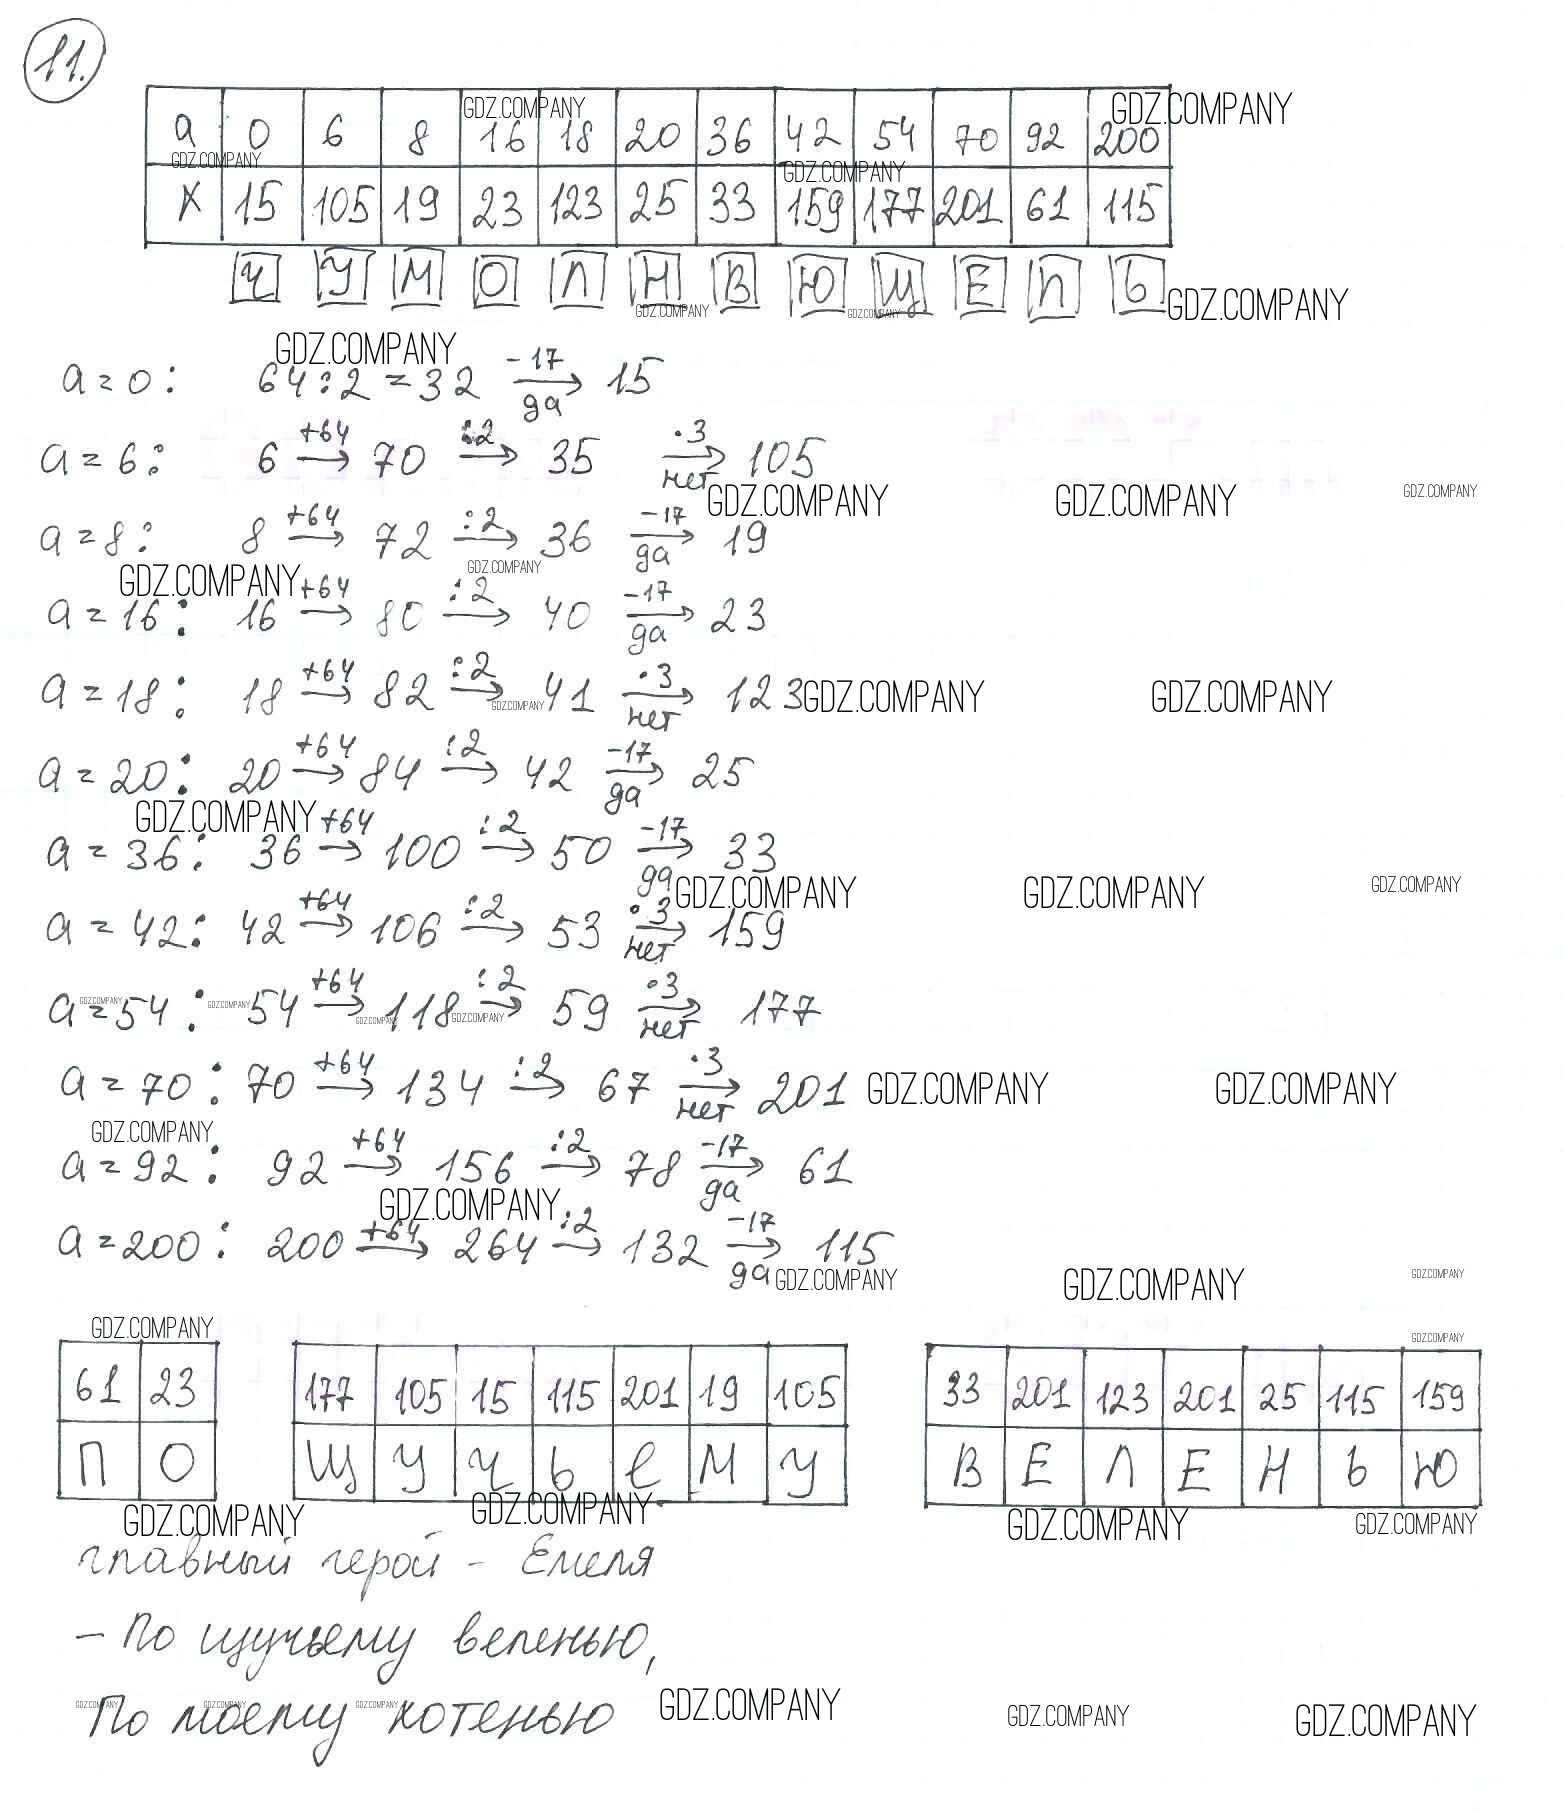 11.
a 0 6 8 16 18 20 36 42 54 70 92 200
x 15 105 19 23 123 25 33 159 177 201 61 115
Ч У М О Л Н В Ю Щ Е П Ь
a=0: 64:2=32 -17 → да 15
a=6: 6 +64 → 70 :2 → 35 ·3 → нет 105
a=8: 8 +64 → 72 :2 → 36 -17 → да 19
a=16: 16 +64 → 80 :2 → 40 -17 → да 23
a=18: 18 +64 → 82 :2 → 41 ·3 → нет 123
a=20: 20 +64 → 84 :2 → 42 -17 → да 25
a=36: 36 +64 → 100 :2 → 50 -17 → да 33
a=42: 42 +64 → 106 :2 → 53 ·3 → нет 159
a=54: 54 +64 → 118 :2 → 59 ·3 → нет 177
a=70: 70 +64 → 134 :2 → 67 ·3 → нет 201
a=92: 92 +64 → 156 :2 → 78 -17 → да 61
a=200: 200 +64 → 264 :2 → 132 -17 → да 115
61 23 177 105 15 115 201 19 105 33 201 123 201 25 115 159
П О Щ У Ч Ь е М У В Е Л Е Н Ь Ю
главный герой - Емеля
- По щучьему веленью,
По моему хотенью
GDZ.COMPANY